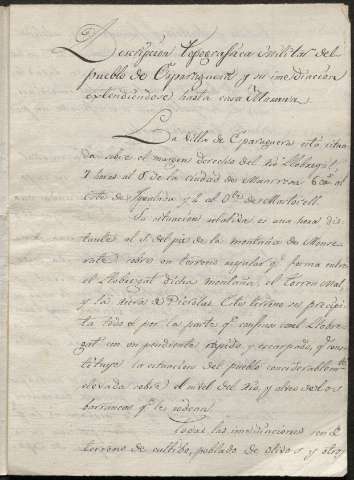 Descripción topografica militar del
pueblo de Esparaguera y su inmediacion
extendiendose hasta casa Masana.
La Villa de Esparaguera está situa-
da sobre el margen derecho del rio Llobregat,
7 horas al S. de la ciudad de Manresa 6 al
Este de Igualada y 2 al O. de Martorell.
La situacion relativa es una hora dis-
tante al S. del pie de la montaña de Monse-
rrate sobre un terreno regular q.e forma entre
el Llobregat dicha montaña, el torren Mal,
y la riera de Pierolas. Este terreno se precipi-
ta todo por la parte q.e confina con el Llobre-
gat con un pendiente rapido y escarpado, q.e cons-
tituye la situacion del pueblo considerablem.te
elevada sobre el nivel del rio y alveo de los
barrancos q.e le rodean.
Todas las inmediaciones son de
terreno de cultibo, poblado de olivos y otros